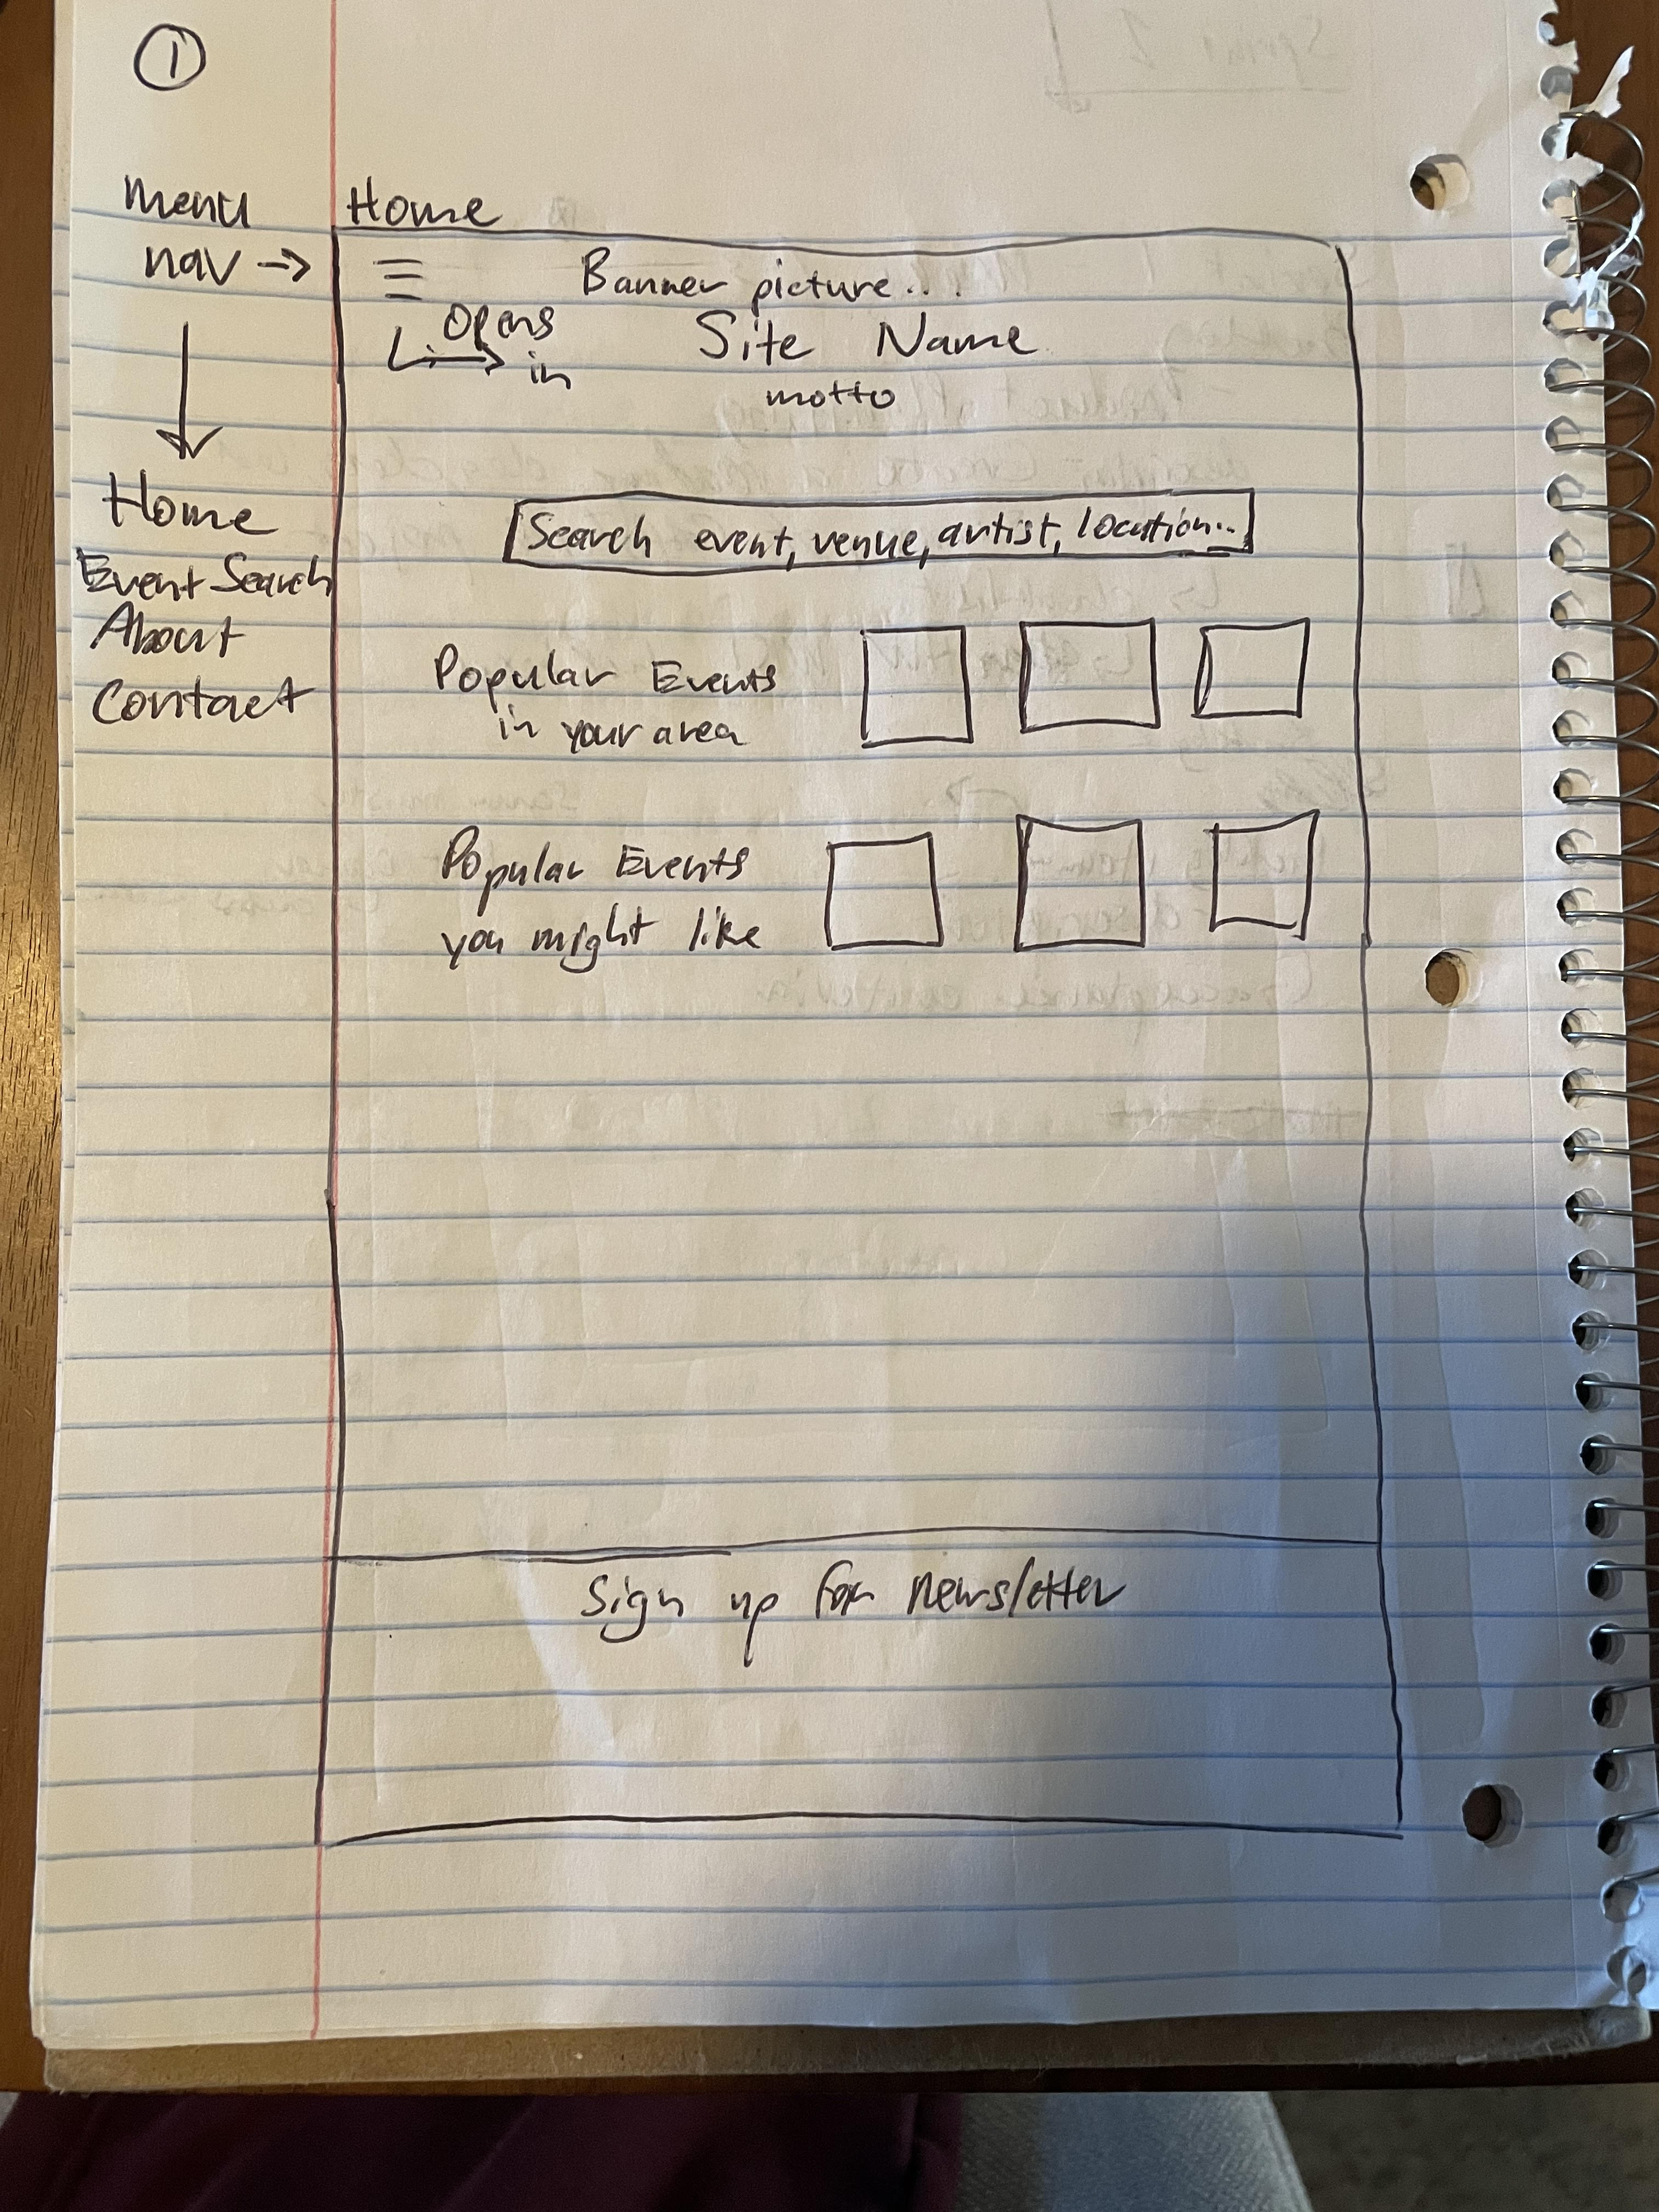 1
Menu
nav →
Home
Event Search
About
Contact
Home
Banner picture...
Opens
in
Site Name
motto
Search event, venue, artist, location...
Popular Events
in your area
Popular Events
you might like
Sign up for newsletter